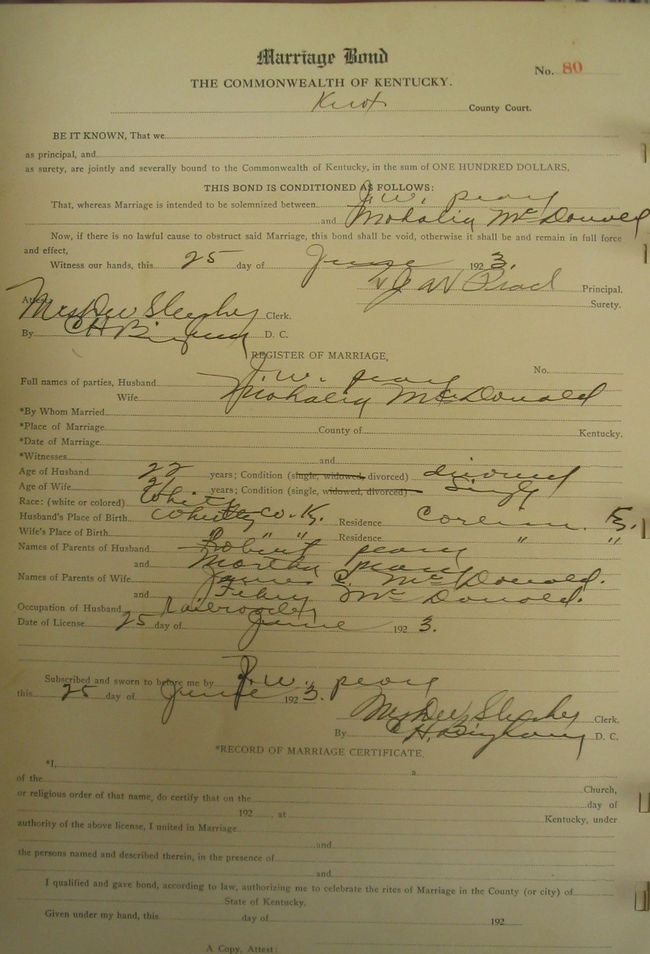 Marriage Bond
No. 80
THE COMMONWEALTH OF KENTUCKY.
Knox County Court.
BE IT KNOWN, That we
as principal, and
as surety, are jointly and severally bound to the Commonwealth of Kentucky, in the sum of ONE HUNDRED DOLLARS,
THIS BOND IS CONDITIONED AS FOLLOWS:
That, whereas Marriage is intended to be solemnized between J. W.
and McDonald
Now, if there is no lawful cause to obstruct said Marriage, this bond shall be void, otherwise it shall and remain in full force
and effect,
Witness our hands, this 25 day of June 1923.
J W Principal.
Surety.
Attest
Mrs Dew Slusher Clerk.
By C H Bingham D. C.
REGISTER OF MARRIAGE,
No.
Full names of parties, Husband J. W.
Wife McDonald
*By Whom Married
*Place of Marriage County of Kentucky.
*Date of Marriage
*Witnesses and
Age of Husband 22 years; Condition (single, widowed, divorced) divorced
Age of Wife 21 years; Condition (single, widowed, divorced) Single
Race: (white or colored) White
Husband's Place of Birth Whitley Co. Ky. Residence Corbin Ky.
Wife's Place of Birth " " Residence " "
Names of Parents of Husband Robert
and Martha
Names of Parents of Wife James McDonald.
and McDonald.
Occupation of Husband Railroader
Date of License 25 day of June 1923.
Subscribed and sworn to before me by J. W.
this 25 day of June 1923.
Mrs Dew Slusher Clerk.
By C H. Bingham D. C.
*RECORD OF MARRIAGE CERTIFICATE.
*I, a
of the Church,
or religious order of that name, do certify that on the day of
192 , at Kentucky, under
authority of the above license, I united in Marriage
and
the persons named and described therein, in the presence of
and
I qualified and gave bond, according to law, authorizing me to celebrate the rites of Marriage in the County (or city) of
State of Kentucky.
Given under my hand, this day of 192
A Copy, Attest: